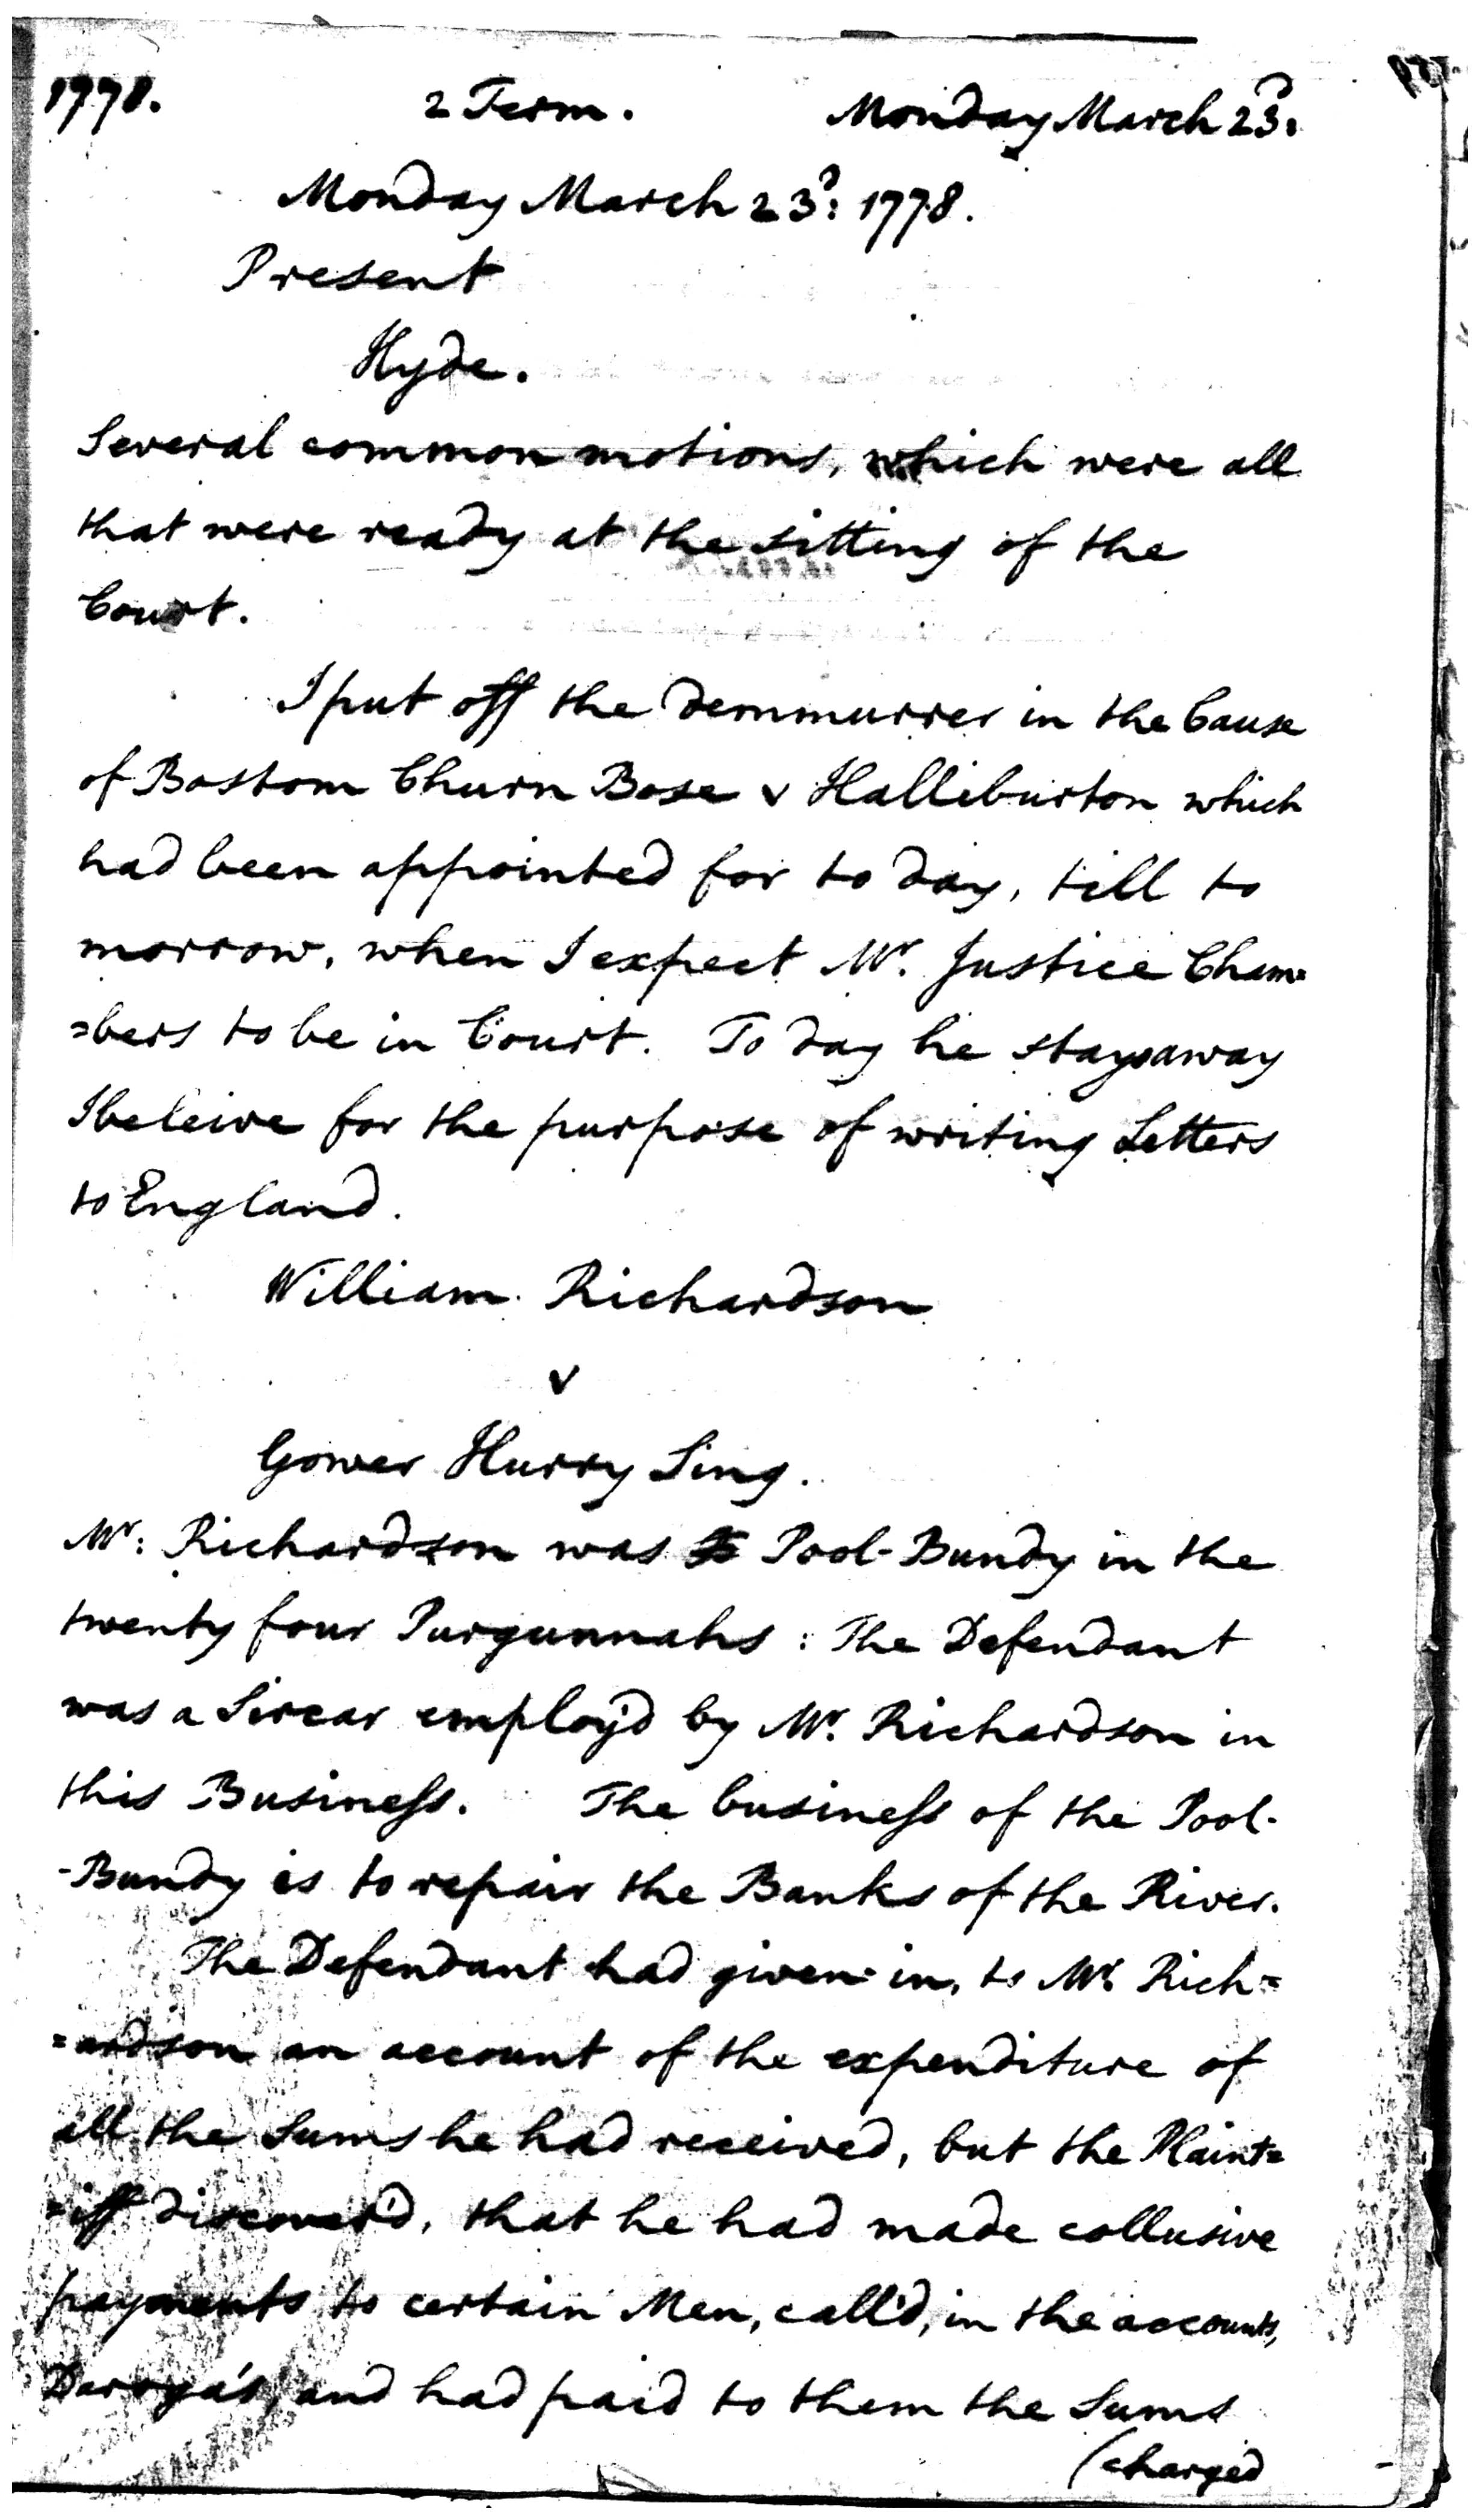 1778. 2 Term. Monday March 23d:
Monday March 23d: 1778.
Present
Hyde.
Several common motions, which were all
that were ready at the sitting of the
Court.
I put off the demmurrer in the Cause
of Bostom Churn Bose v Halliburton which
had been appointed for to day, till to
morrow, when I expect Mr. Justice Cham=
=bers to be in Court. To day he stays away
I beleive for the purpose of writing Letters
to England.
William Richardson
v
Gower Hurry Sing.
Mr: Richardson was Pool-Bundy in the
twenty four Purgunnahs : The Defendant
was a Sircar employ'd by Mr. Richardson in
this Business. The business of the Pool-
-Bundy is to repair the Banks of the River.
The Defendant had given in, to Mr. Rich=
=ardson an account of the expenditure of
all the Sums he had received, but the Plaint=
=iff discover'd, that he had made collusive
payments to certain Men, call'd, in the accounts,
Darroga's, and had paid to them the Sums
(charged